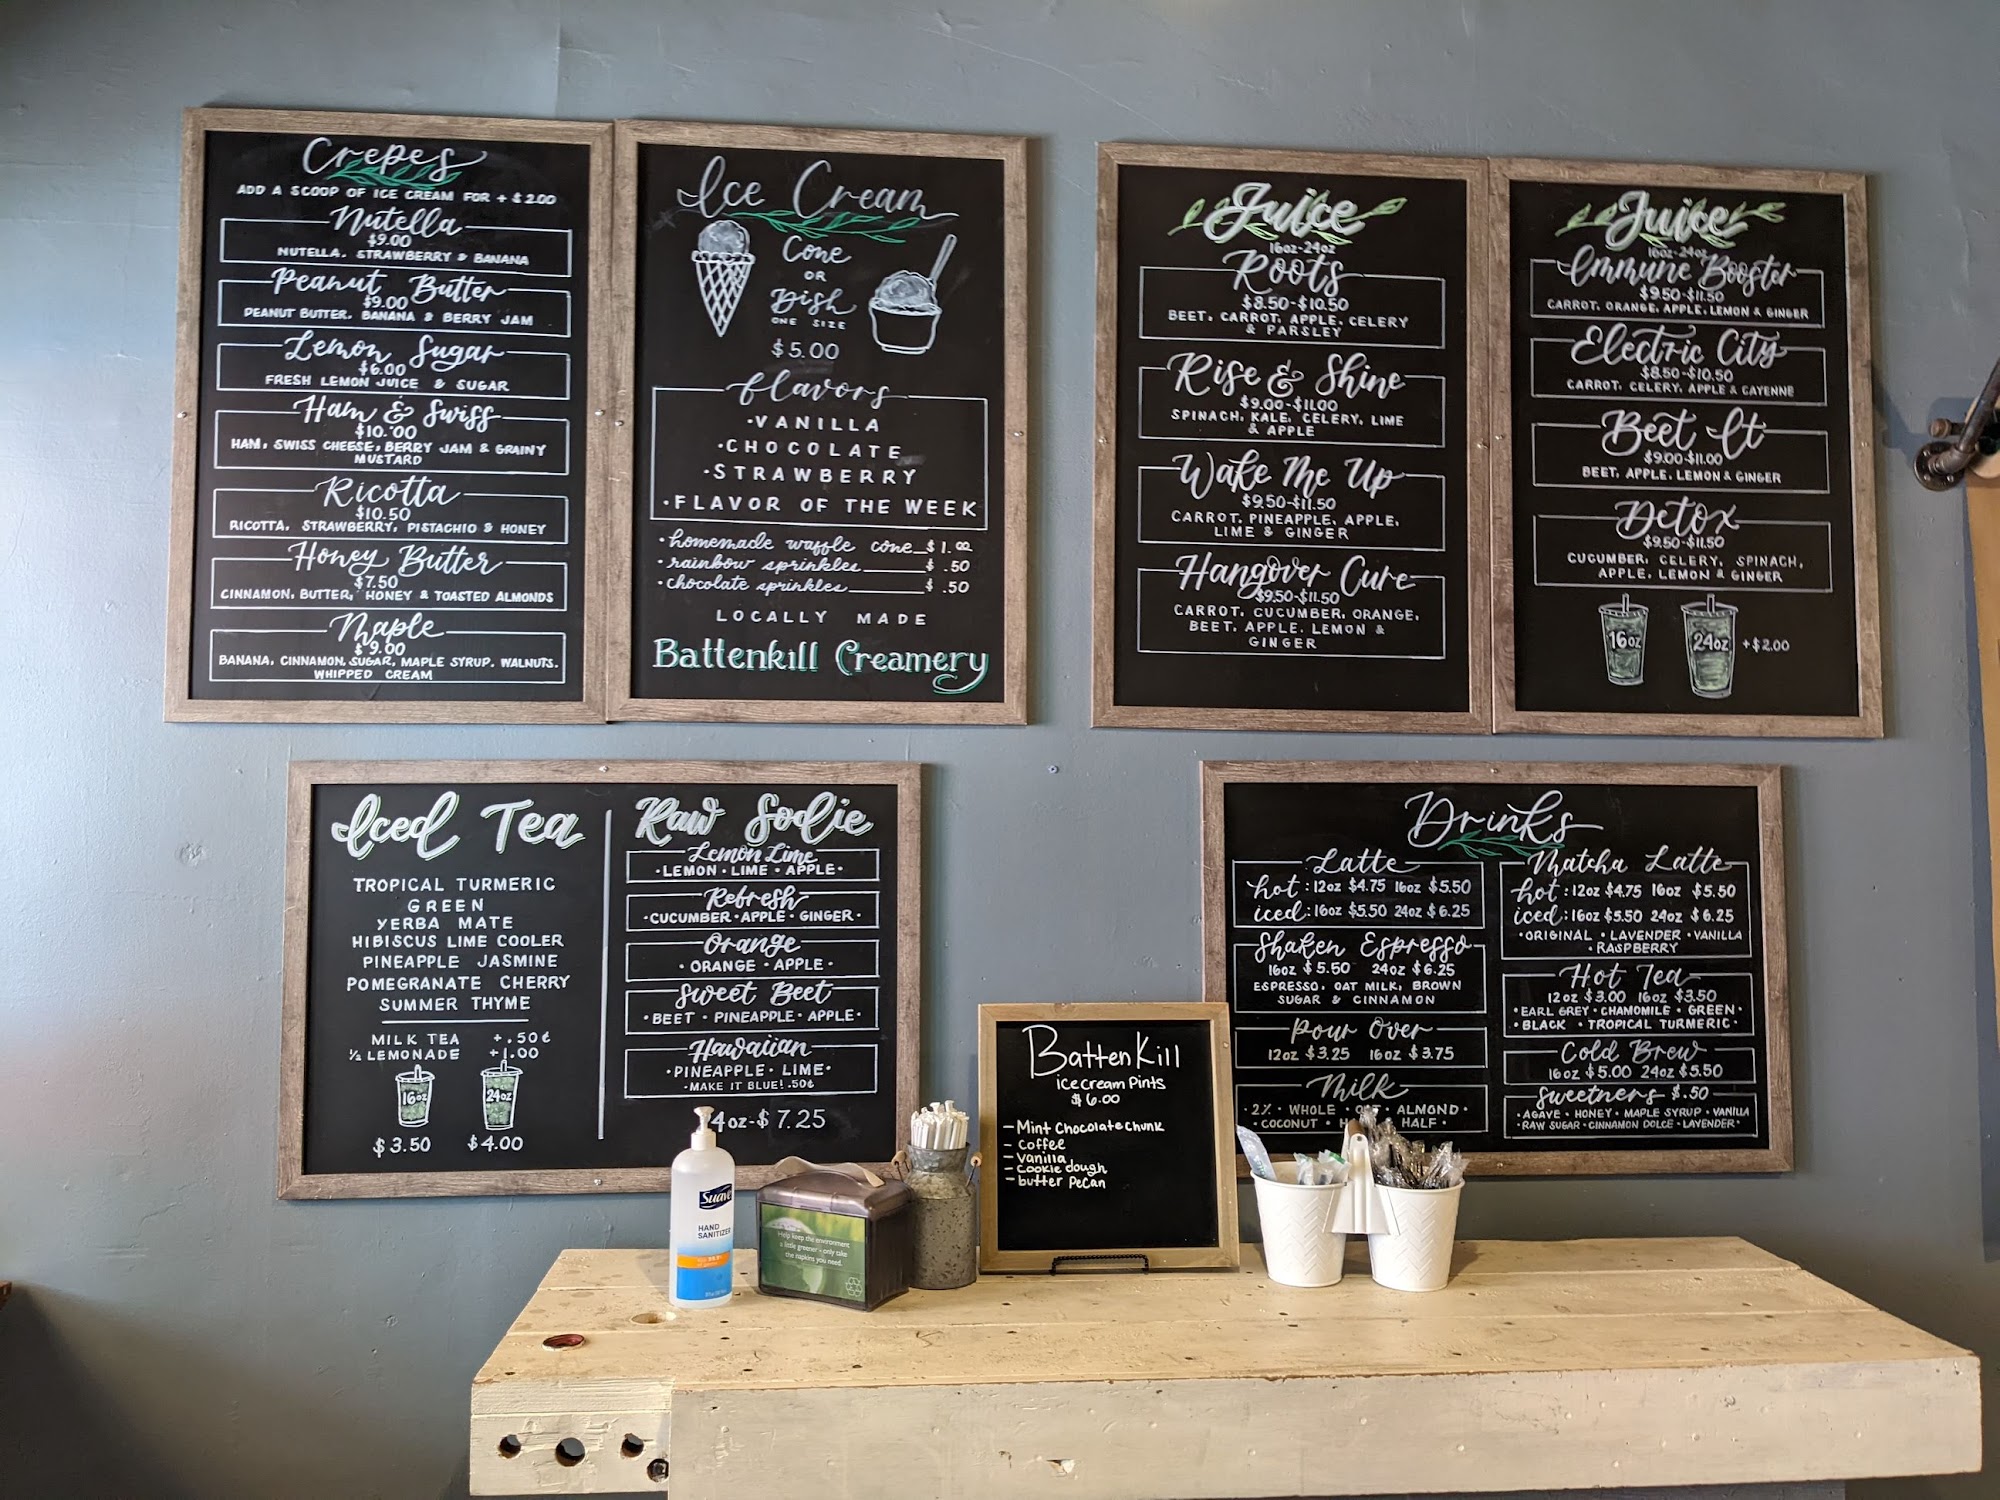 Crepes
ADD A SCOOP OF ICE CREAM FOR + $2.00
Nutella
$9.00
NUTELLA, STRAWBERRY & BANANA
Peanut Butter
$9.00
PEANUT BUTTER, BANANA & BERRY JAM
Lemon Sugar
$6.00
FRESH LEMON JUICE & SUGAR
Ham & Swiss
$10.00
HAM, SWISS CHEESE, BERRY JAM & GRAINY
MUSTARD
Ricotta
$10.50
RICOTTA, STRAWBERRY, PISTACHIO & HONEY
Honey Butter
$7.50
CINNAMON, BUTTER, HONEY & TOASTED ALMONDS
Maple
$9.00
BANANA, CINNAMON, SUGAR, MAPLE SYRUP, WALNUTS,
WHIPPED CREAM
Ice Cream
Cone
OR
Dish
ONE SIZE
$5.00
flavors
·VANILLA
·CHOCOLATE
·STRAWBERRY
·FLAVOR OF THE WEEK
·homemade waffle cone $1.00
·rainbow sprinkles $.50
·chocolate sprinkles $.50
LOCALLY MADE
Battenkill Creamery
Juice
16oz-24oz
Roots
$8.50-$10.50
BEET, CARROT, APPLE, CELERY
& PARSLEY
Rise & Shine
$9.00-$11.00
SPINACH, KALE, CELERY, LIME
& APPLE
Wake Me Up
$9.50-$11.50
CARROT, PINEAPPLE, APPLE,
LIME & GINGER
Hangover Cure
$9.50-$11.50
CARROT, CUCUMBER, ORANGE,
BEET, APPLE, LEMON &
GINGER
Juice
16oz-24oz
Immune Booster
$9.50-$11.50
CARROT, ORANGE, APPLE, LEMON & GINGER
Electric City
$8.50-$10.50
CARROT, CELERY, APPLE & CAYENNE
Beet It
$9.00-$11.00
BEET, APPLE, LEMON & GINGER
Detox
$9.50-$11.50
CUCUMBER, CELERY, SPINACH,
APPLE, LEMON & GINGER
16oz 24oz +$2.00
Iced Tea
TROPICAL TURMERIC
GREEN
YERBA MATE
HIBISCUS LIME COOLER
PINEAPPLE JASMINE
POMEGRANATE CHERRY
SUMMER THYME
MILK TEA +.50¢
½ LEMONADE +1.00
16oz 24oz
$3.50 $4.00
Raw Sodie
Lemon Lime
·LEMON·LIME·APPLE·
Refresh
·CUCUMBER·APPLE·GINGER·
Orange
·ORANGE·APPLE·
Sweet Beet
·BEET·PINEAPPLE·APPLE·
Hawaiian
·PINEAPPLE·LIME·
·MAKE IT BLUE! .50¢
4oz-$7.25
Drinks
Latte
hot: 12oz $4.75 16oz $5.50
iced: 16oz $5.50 24oz $6.25
Shaken Espresso
16oz $5.50 24oz $6.25
ESPRESSO, OAT MILK, BROWN
SUGAR & CINNAMON
Pour Over
12oz $3.25 16oz $3.75
Milk
·2%·WHOLE· ALMOND·
·COCONUT· HALF·
Matcha Latte
hot: 12oz $4.75 16oz $5.50
iced: 16oz $5.50 24oz $6.25
·ORIGINAL·LAVENDER·VANILLA
·RASPBERRY
Hot Tea
12oz $3.00 16oz $3.50
·EARL GREY·CHAMOMILE·GREEN·
·BLACK·TROPICAL TURMERIC·
Cold Brew
16oz $5.00 24oz $5.50
Sweetners $.50
·AGAVE·HONEY·MAPLE SYRUP·VANILLA
·RAW SUGAR·CINNAMON DOLCE·LAVENDER·
BattenKill
ice cream pints
$6.00
- Mint Chocolate Chunk
- Coffee
- Vanilla
- Cookie dough
- butter Pecan
Suave
HAND
SANITIZER
Help keep the environment
a little greener - only take
the napkins you need.